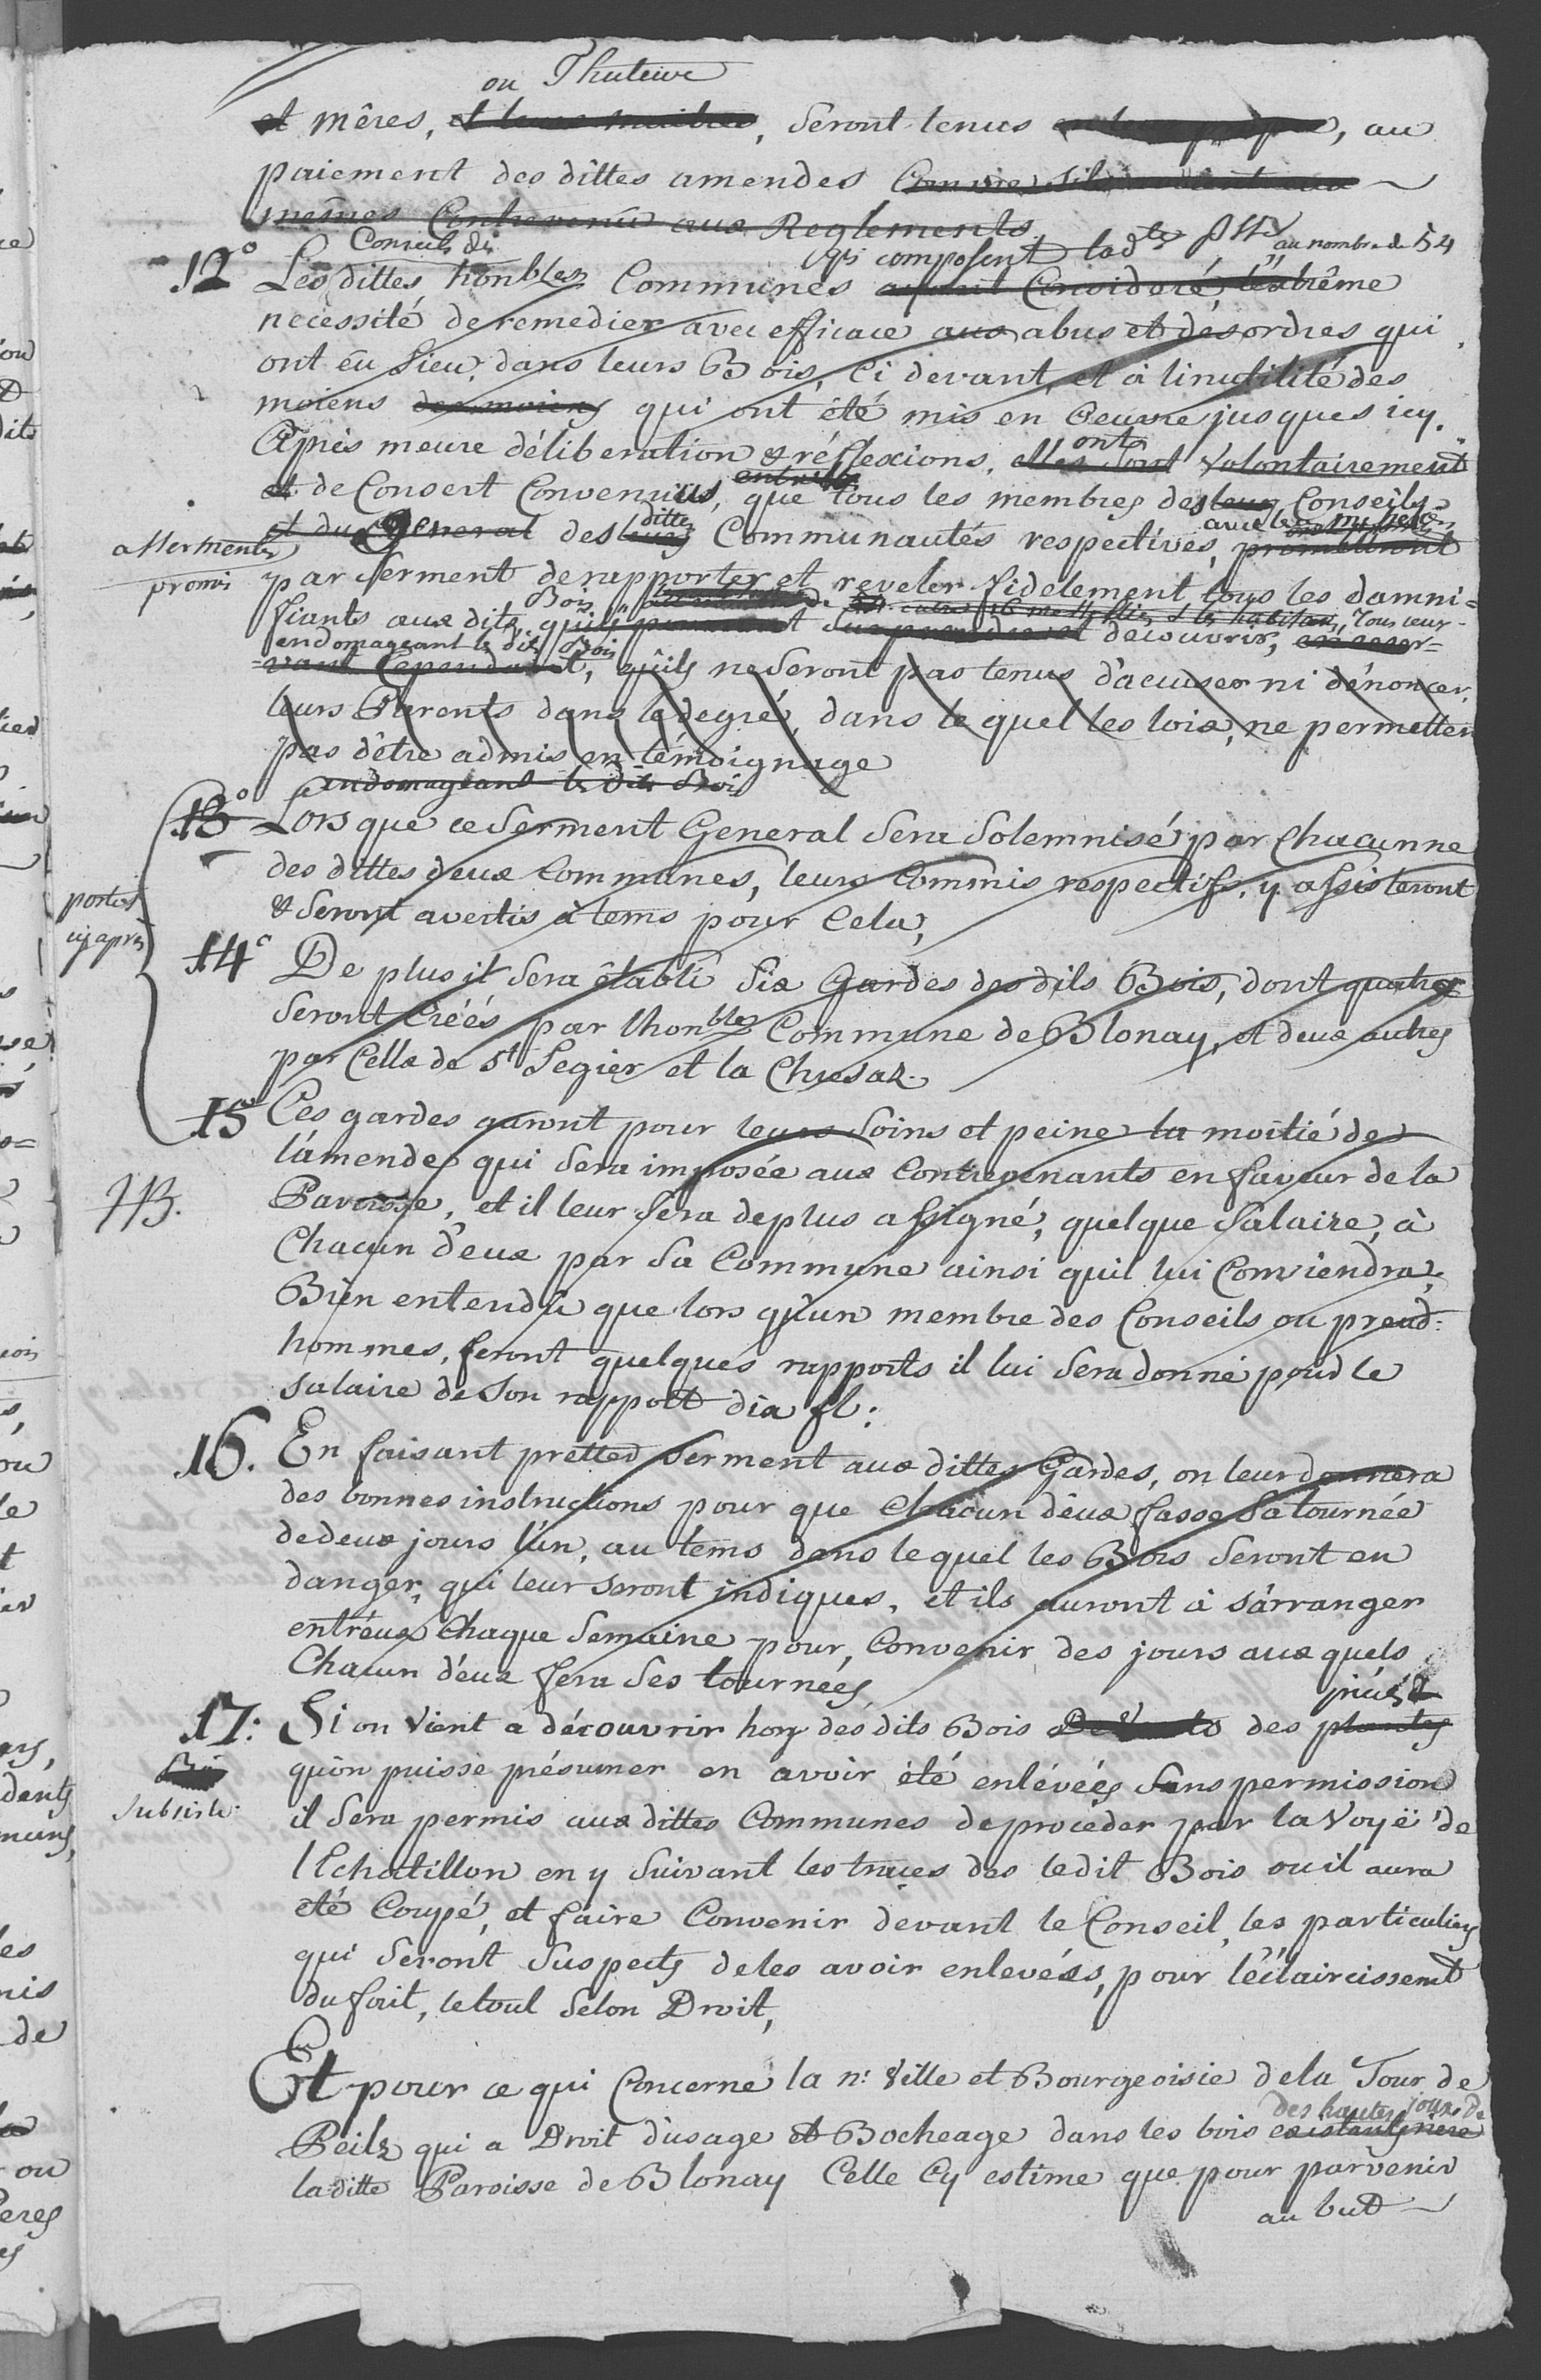 ou Thuteure
et mêres, et leurs maitres, Seront tenus en leur propre, au
paiement des dittes amendes Comme s'ils
mesmes Contrevenu aux Reglements.
Conseils des qui composent lad.te Psse au nombre de 54
12° Les dittes honbles Communes ayant Consideré, l'extrême
necessité de remedier avec efficace aux abus et désordres qui
ont eû lieu, dans leurs Bois, Ci devant, et à linutilité des
moiens des moiens qui ont été mis en Oeuvre jusques icy.
Après meure déliberation & réflexions, elles Sont Volontairement
ont
et de Concert Convenues, que tous les membres des leurs Conseils
entr'elles
et du General des leurs Communautés respectives, promettront
dittes avec les
assermentés
promis
par Serment de rapporter et reveler fidelement tous les damni=
fiants aux dits Bois, qu'ils pourront Surprendre et découvrir, en reser=
les habitans, Tous ceux
endomageant les dits Bois
vant Cependant, qu'ils ne Seront pas tenus d'acuser ni dénoncer,
leurs Parents dans le degré, dans le quel les loix, ne permetten
pas d'être admis en témoignage
endomageans les dits Bois
13° Lors que ce Serment General Sera Solemnisé par Chacunne
des dittes deux Communes, leurs Commis respectifs, y assisteront
& Seront avertis à tems pour Cela,
portés
cy après
14° De plus il Sera êtabli Six Gardes des dits Bois, dont quatre
Seront Créés par lhonbles Commune de Blonay, et deux autres
par Celle de St. Legier et la Chiesaz.
15 Ces gardes auront pour leurs Soins et peine la moitié de
l'amende qui Sera imposée aux Contrevenants en faveur de la
NB.
Paroisse, et il leur Sera de plus assigné, quelque Salaire, à
Chacun d'eux par Sa Commune ainsi quil lui Conviendra;
Bien entendu que lors qu'un membre des Conseils ou preud:
hommes, feront quelques rapports il lui Sera donné pour le
Salaire de Son rapport dix fl:
16. En faisant pretter Serment aux dittes Gardes, on leur donnera
des bonnes instructions pour que Chacun d'eux fasse Sa tournée
de deux jours l'un, au tems dans le quel les Bois Seront en
danger, qui leur seront indiques, et ils auront à sárranger
entréux Chaque Semaine pour Convenir des jours aux quels
Chacun d'eux fera Ses tournées
17: Si on vient a découvrir hors des dits Bois des plantes
piéces
Subsiste.
qu'on puisse présumer en avoir été enlévées Sans permission
il Sera permis aux dittes Communes de procéder par la Voye de
l'Echatillon en y Suivant les traces des ledit Bois ou il aura
été Coupé, et faire Convenir devant le Conseil, les particuliers
qui Seront Suspects de les avoir enlevées, pour l'éclaircissemt
du fait, le tout Selon Droit,
Et pour ce qui Concerne la n: Ville et Bourgeoisie de la Tour de
Peilz qui a Droit d'usage et Bocheage dans les bois existants riere
des hautes joux de
laditte Paroisse de Blonay Celle Cy estime que pour parvenir
au but